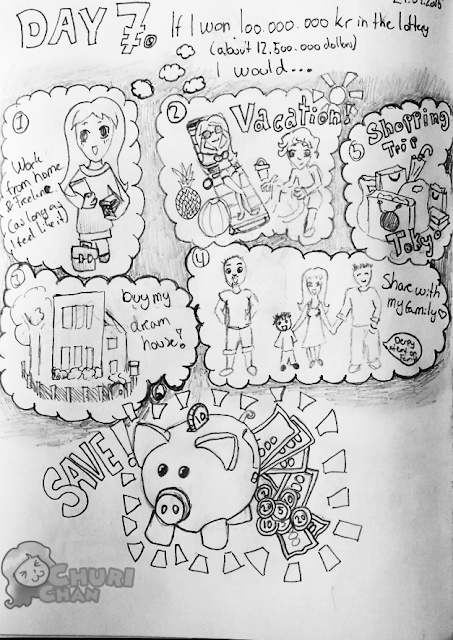 DAY 7.
If I won 100.000.000 kr in the lottery
(about 12.500.000 dollars)
I would...
1
Work
from home
(as long as
I feel like it)
2
Vacation!
3
Shopping
Trip
Tokyo!
4
Share with
my family
5
buy my
dream
house!
6
SAVE!
10
CHURI
CHAN